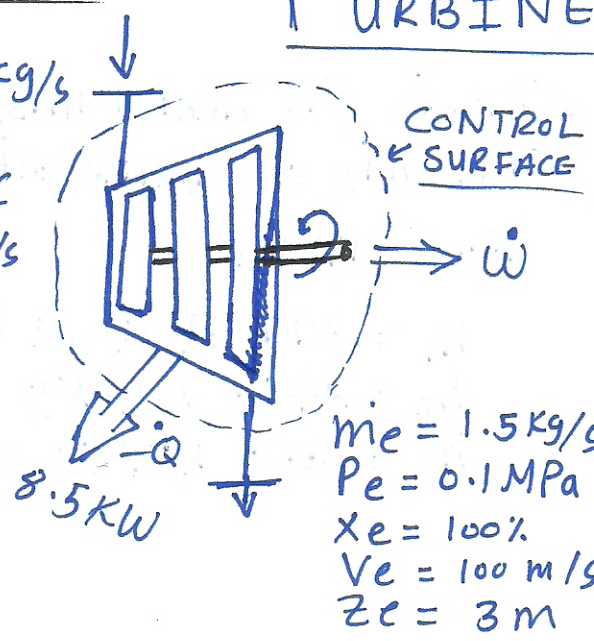 TURBINE
kg/s
CONTROL
SURFACE
/s
Ẇ
-Q̇
8.5KW
ṁe = 1.5kg/s
Pe = 0.1 MPa
Xe = 100%
Ve = 100 m/s
Ze = 3 m